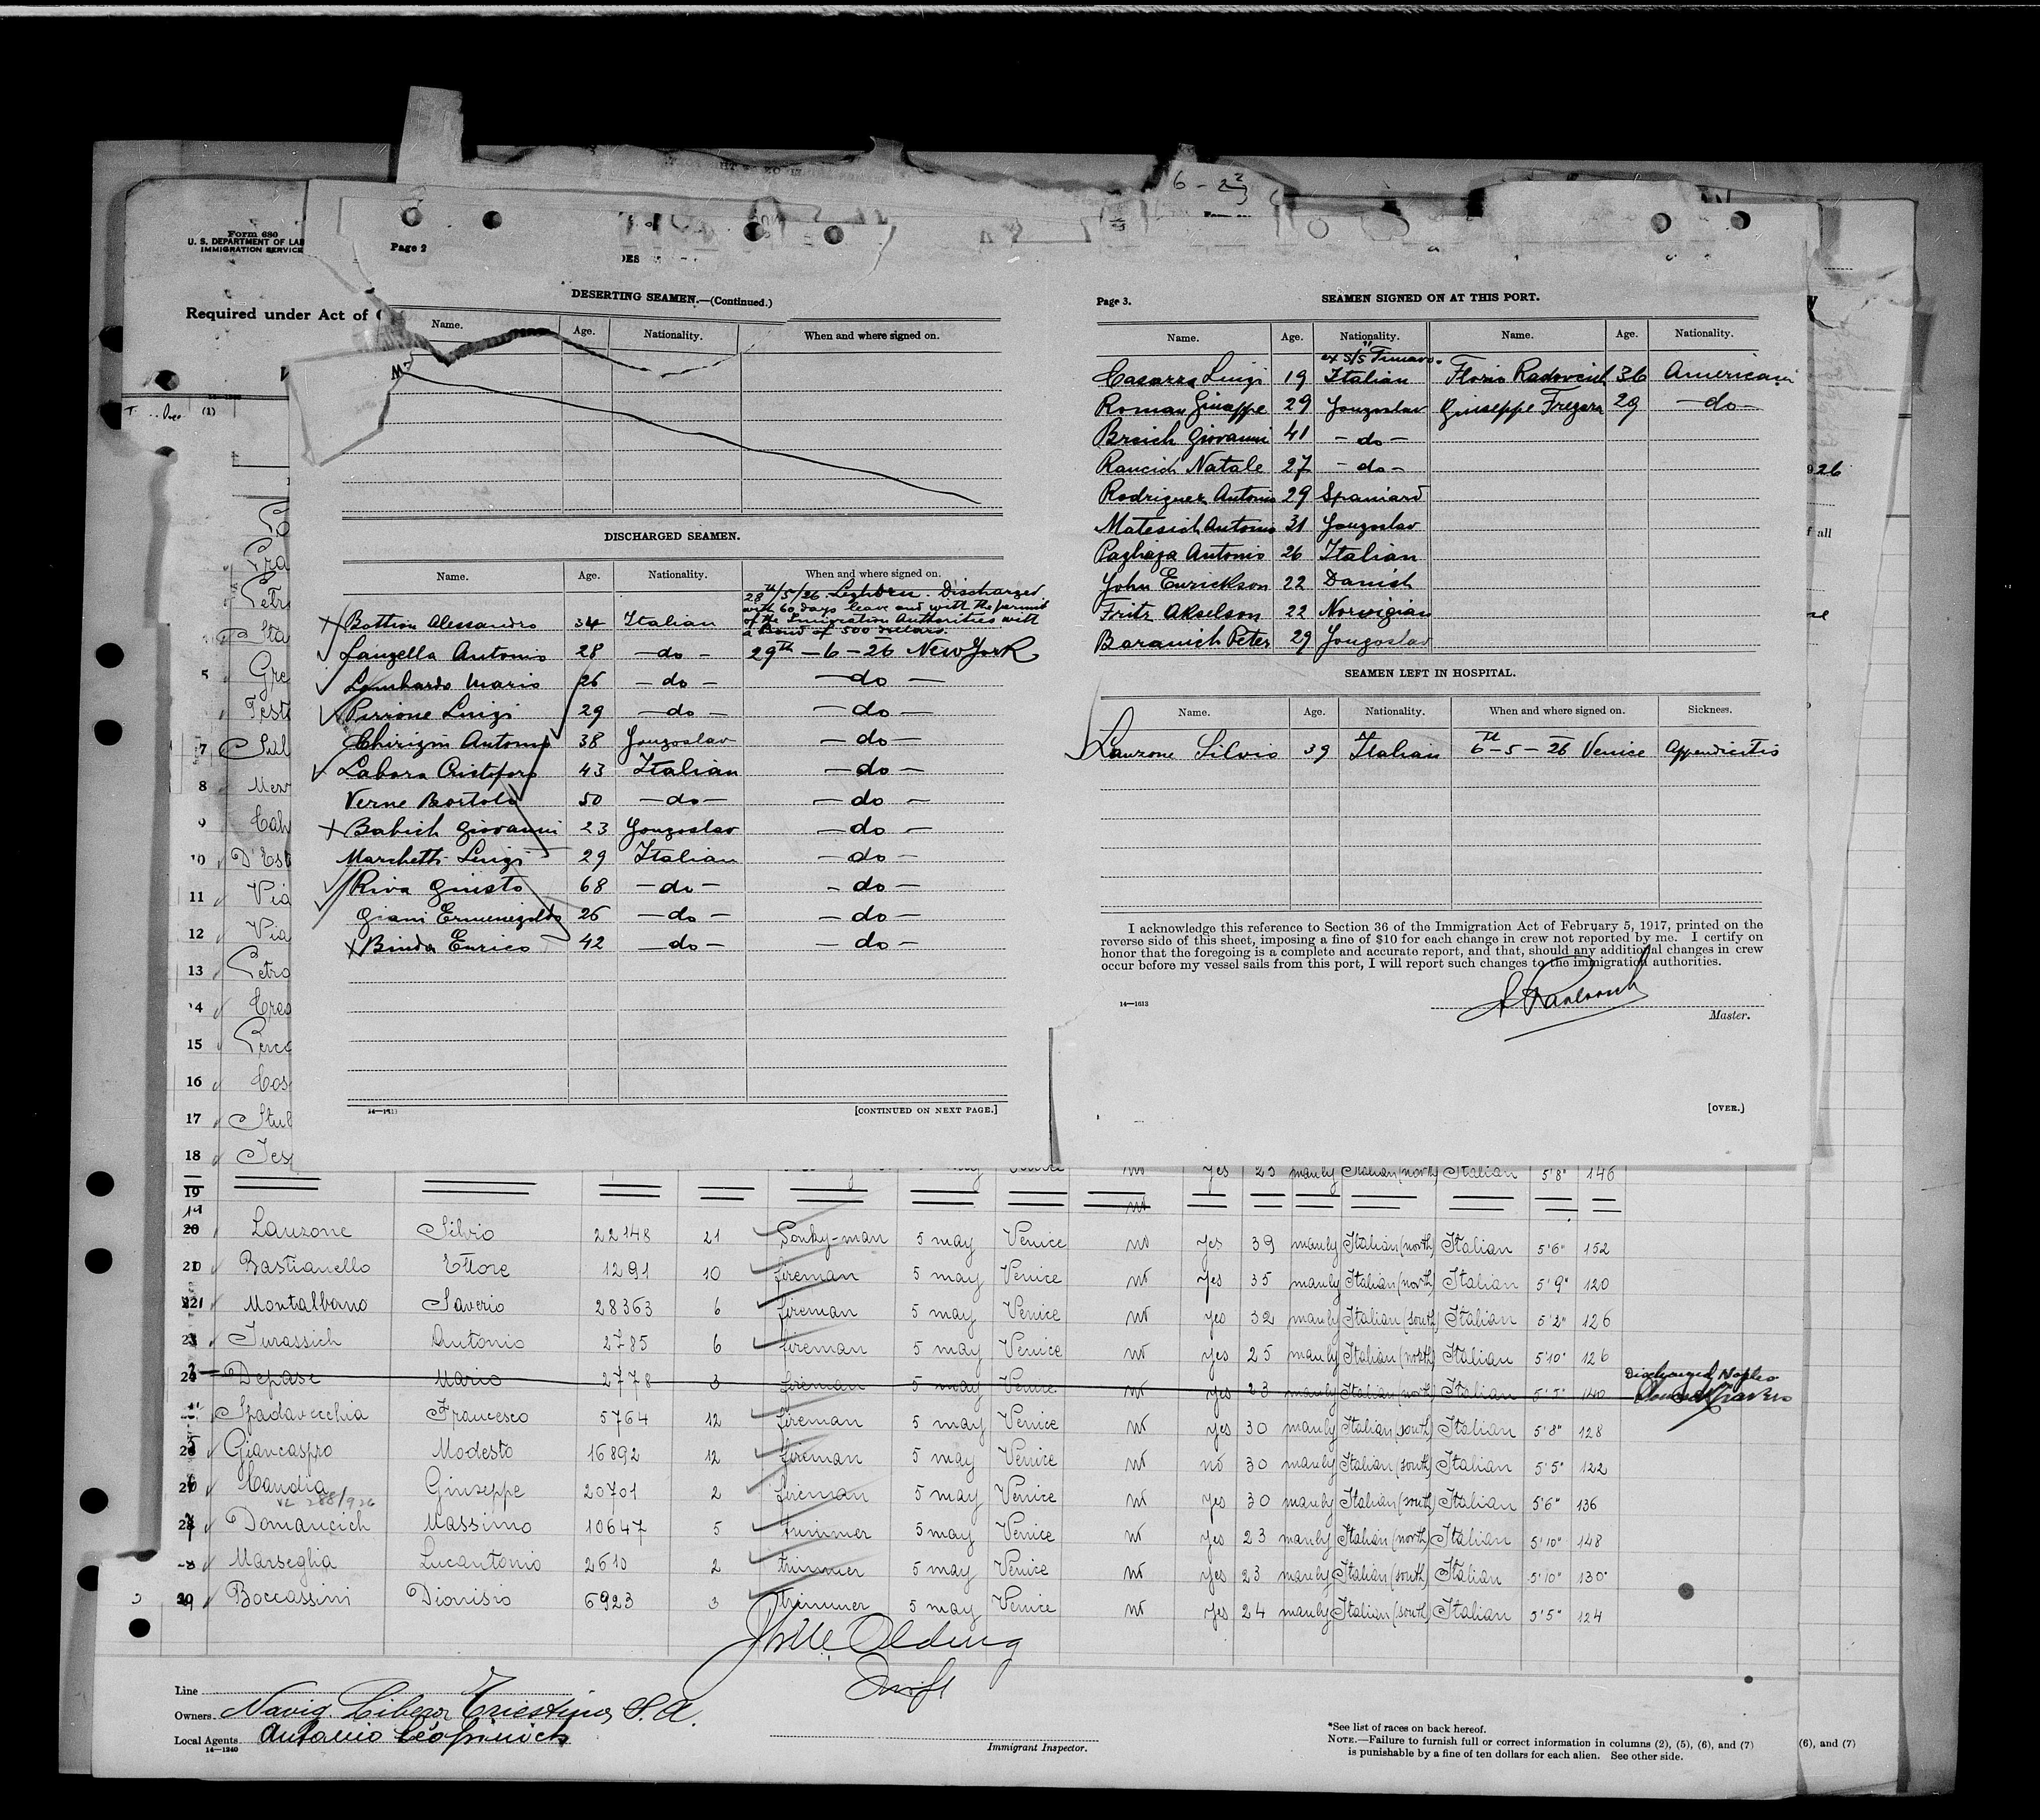 6 - 22/3
Form 680
U. S. DEPARTMENT OF LAB
IMMIGRATION SERVICE
Required under Act of
(1)
Page 2
DESERTING SEAMEN.—(Continued.)
Name. Age. Nationality. When and where signed on.
DISCHARGED SEAMEN.
Name. Age. Nationality. When and where signed on.
28th/5/26. Leghorn. Discharged
with 60 days leave and with the permit
of the Immigration Authorities with
a Bond of 500 dollars.
Bottion Alessandro 34 Italian
Lanzella Antonio 28 — do — 29th — 6 — 26 New York
Lombardo Mario 26 — do — — do —
Perrone Luigi 29 — do — — do —
Chirigin Antonio 38 Jougoslav — do —
Labora Cristoforo 43 Italian — do —
Verne Bortolo 50 — do — — do —
Babich Giovanni 23 Jougoslav — do —
Marchetti Luigi 29 Italian — do —
Riva Giusto 68 — do — — do —
Giani Ermenegildo 26 — do — — do —
Binda Enrico 42 — do — — do —
14—1613
[CONTINUED ON NEXT PAGE.]
Page 3.
SEAMEN SIGNED ON AT THIS PORT.
Name. Age. Nationality. Name. Age. Nationality.
ex S/S "Timavo"
Casarsa Luigi 19 Italian Florio Radovcich 36 American
Roman Giuseppe 29 Jougoslav Giuseppe Fregara 29 — do —
Braich Giovanni 41 — do —
Rancich Natale 27 — do —
Rodriguez Antonio 29 Spaniard
Matesich Antonio 31 Jougoslav
Pagliaga Antonio 26 Italian
John Enrickson 22 Danish
Fritz Akselson 22 Norvigian
Baranich Peter 29 Jougoslav
SEAMEN LEFT IN HOSPITAL.
Name. Age. Nationality. When and where signed on. Sickness.
Lauzone Silvio 39 Italian 6th — 5 — 26 Venice Appendicitis
I acknowledge this reference to Section 36 of the Immigration Act of February 5, 1917, printed on the
reverse side of this sheet, imposing a fine of $10 for each change in crew not reported by me. I certify on
honor that the foregoing is a complete and accurate report, and that, should any additional changes in crew
occur before my vessel sails from this port, I will report such changes to the immigration authorities.
14—1613
Master.
[OVER.]
926
f all
5 Gre
Test
7 Sul
8
9
10 D'Est
11 Via
12 Via
13 Petro
14
15
16 Cos
17 Stub
18 Tes
yes 23 manly Italian (north) Italian 5'8" 146
19
20 Lauzone Silvio 22148 21 Donky-man 5 may Venice no yes 39 manly Italian (north) Italian 5'6" 152
21 Bastianello Ettore 1291 10 fireman 5 may Venice no yes 35 manly Italian (north) Italian 5'9" 120
22 Montalbano Saverio 28363 6 fireman 5 may Venice no yes 32 manly Italian (south) Italian 5'2" 126
23 Jurassich Antonio 2785 6 fireman 5 may Venice no yes 25 manly Italian (north) Italian 5'10" 126
24 Depase Mario 2778 3 fireman 5 may Venice no yes 23 manly Italian (north) Italian 5'5" 140 Discharged Naples
Spadavecchia Francesco 5764 12 fireman 5 may Venice no yes 30 manly Italian (south) Italian 5'8" 128
Giancaspro Modesto 16892 12 fireman 5 may Venice no no 30 manly Italian (south) Italian 5'5" 122
Candia Giuseppe 20701 2 fireman 5 may Venice no yes 30 manly Italian (south) Italian 5'6" 136
VL 288/926
Domancich Massimo 10647 5 trimmer 5 may Venice no yes 23 manly Italian (north) Italian 5'10" 148
Marseglia Lucantonio 2610 2 trimmer 5 may Venice no yes 23 manly Italian (south) Italian 5'10" 130
Boccassini Dionisio 6923 3 trimmer 5 may Venice no yes 24 manly Italian (south) Italian 5'5" 124
Line
Owners Navig. Libera Triestina S. A.
Local Agents Antonio Cosulich
14—1240
Immigrant Inspector.
*See list of races on back hereof.
NOTE.—Failure to furnish full or correct information in columns (2), (5), (6), and (7)
is punishable by a fine of ten dollars for each alien. See other side.
(6), and (7)